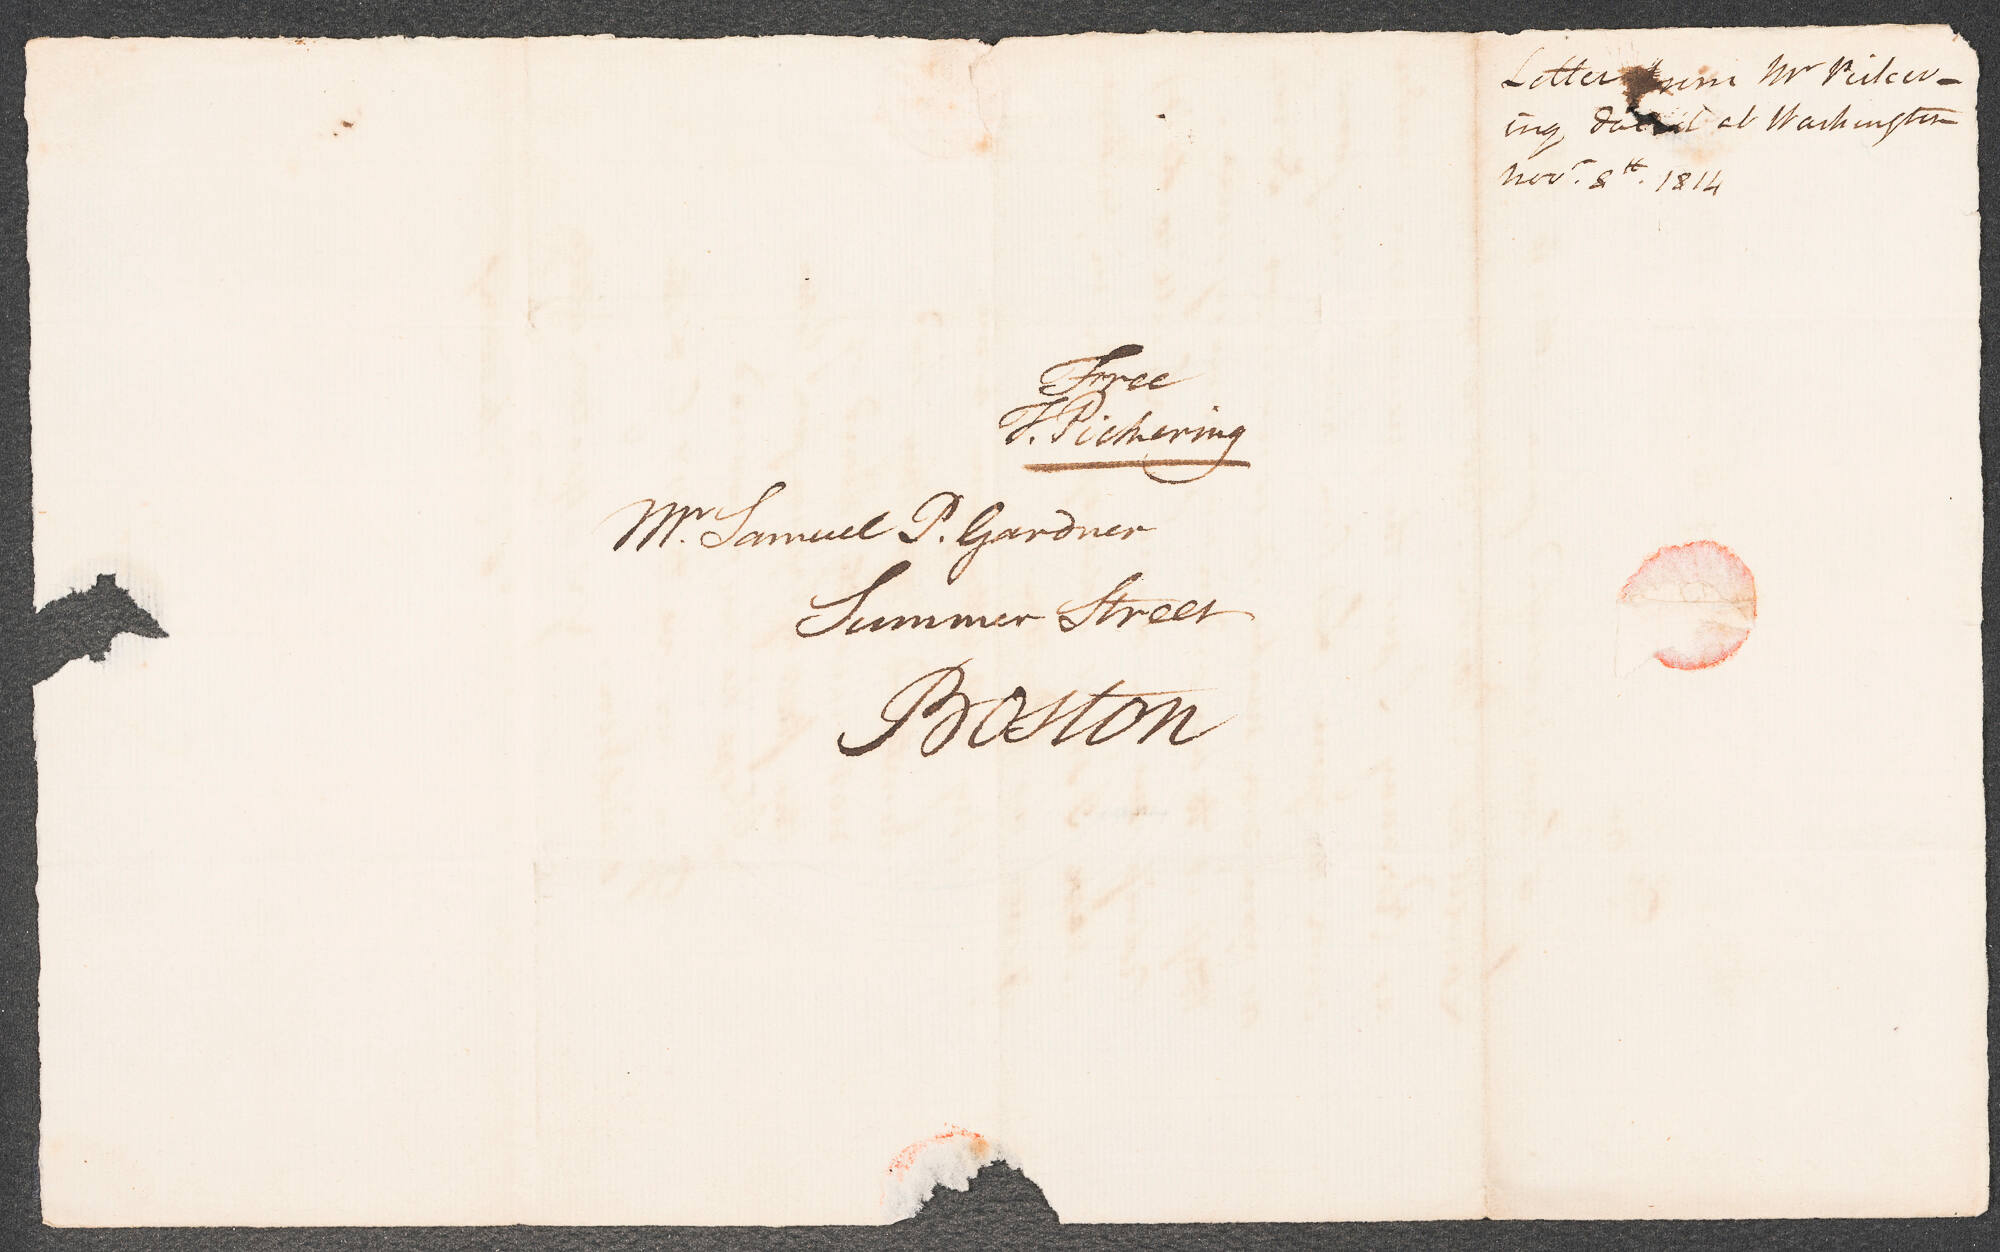 Letter from Mr Picker-
ing, dated at Washington
Novr. 8th. 1814
Free
T. Pickering
Mr. Samuel P. Gardner
Summer Street
Boston